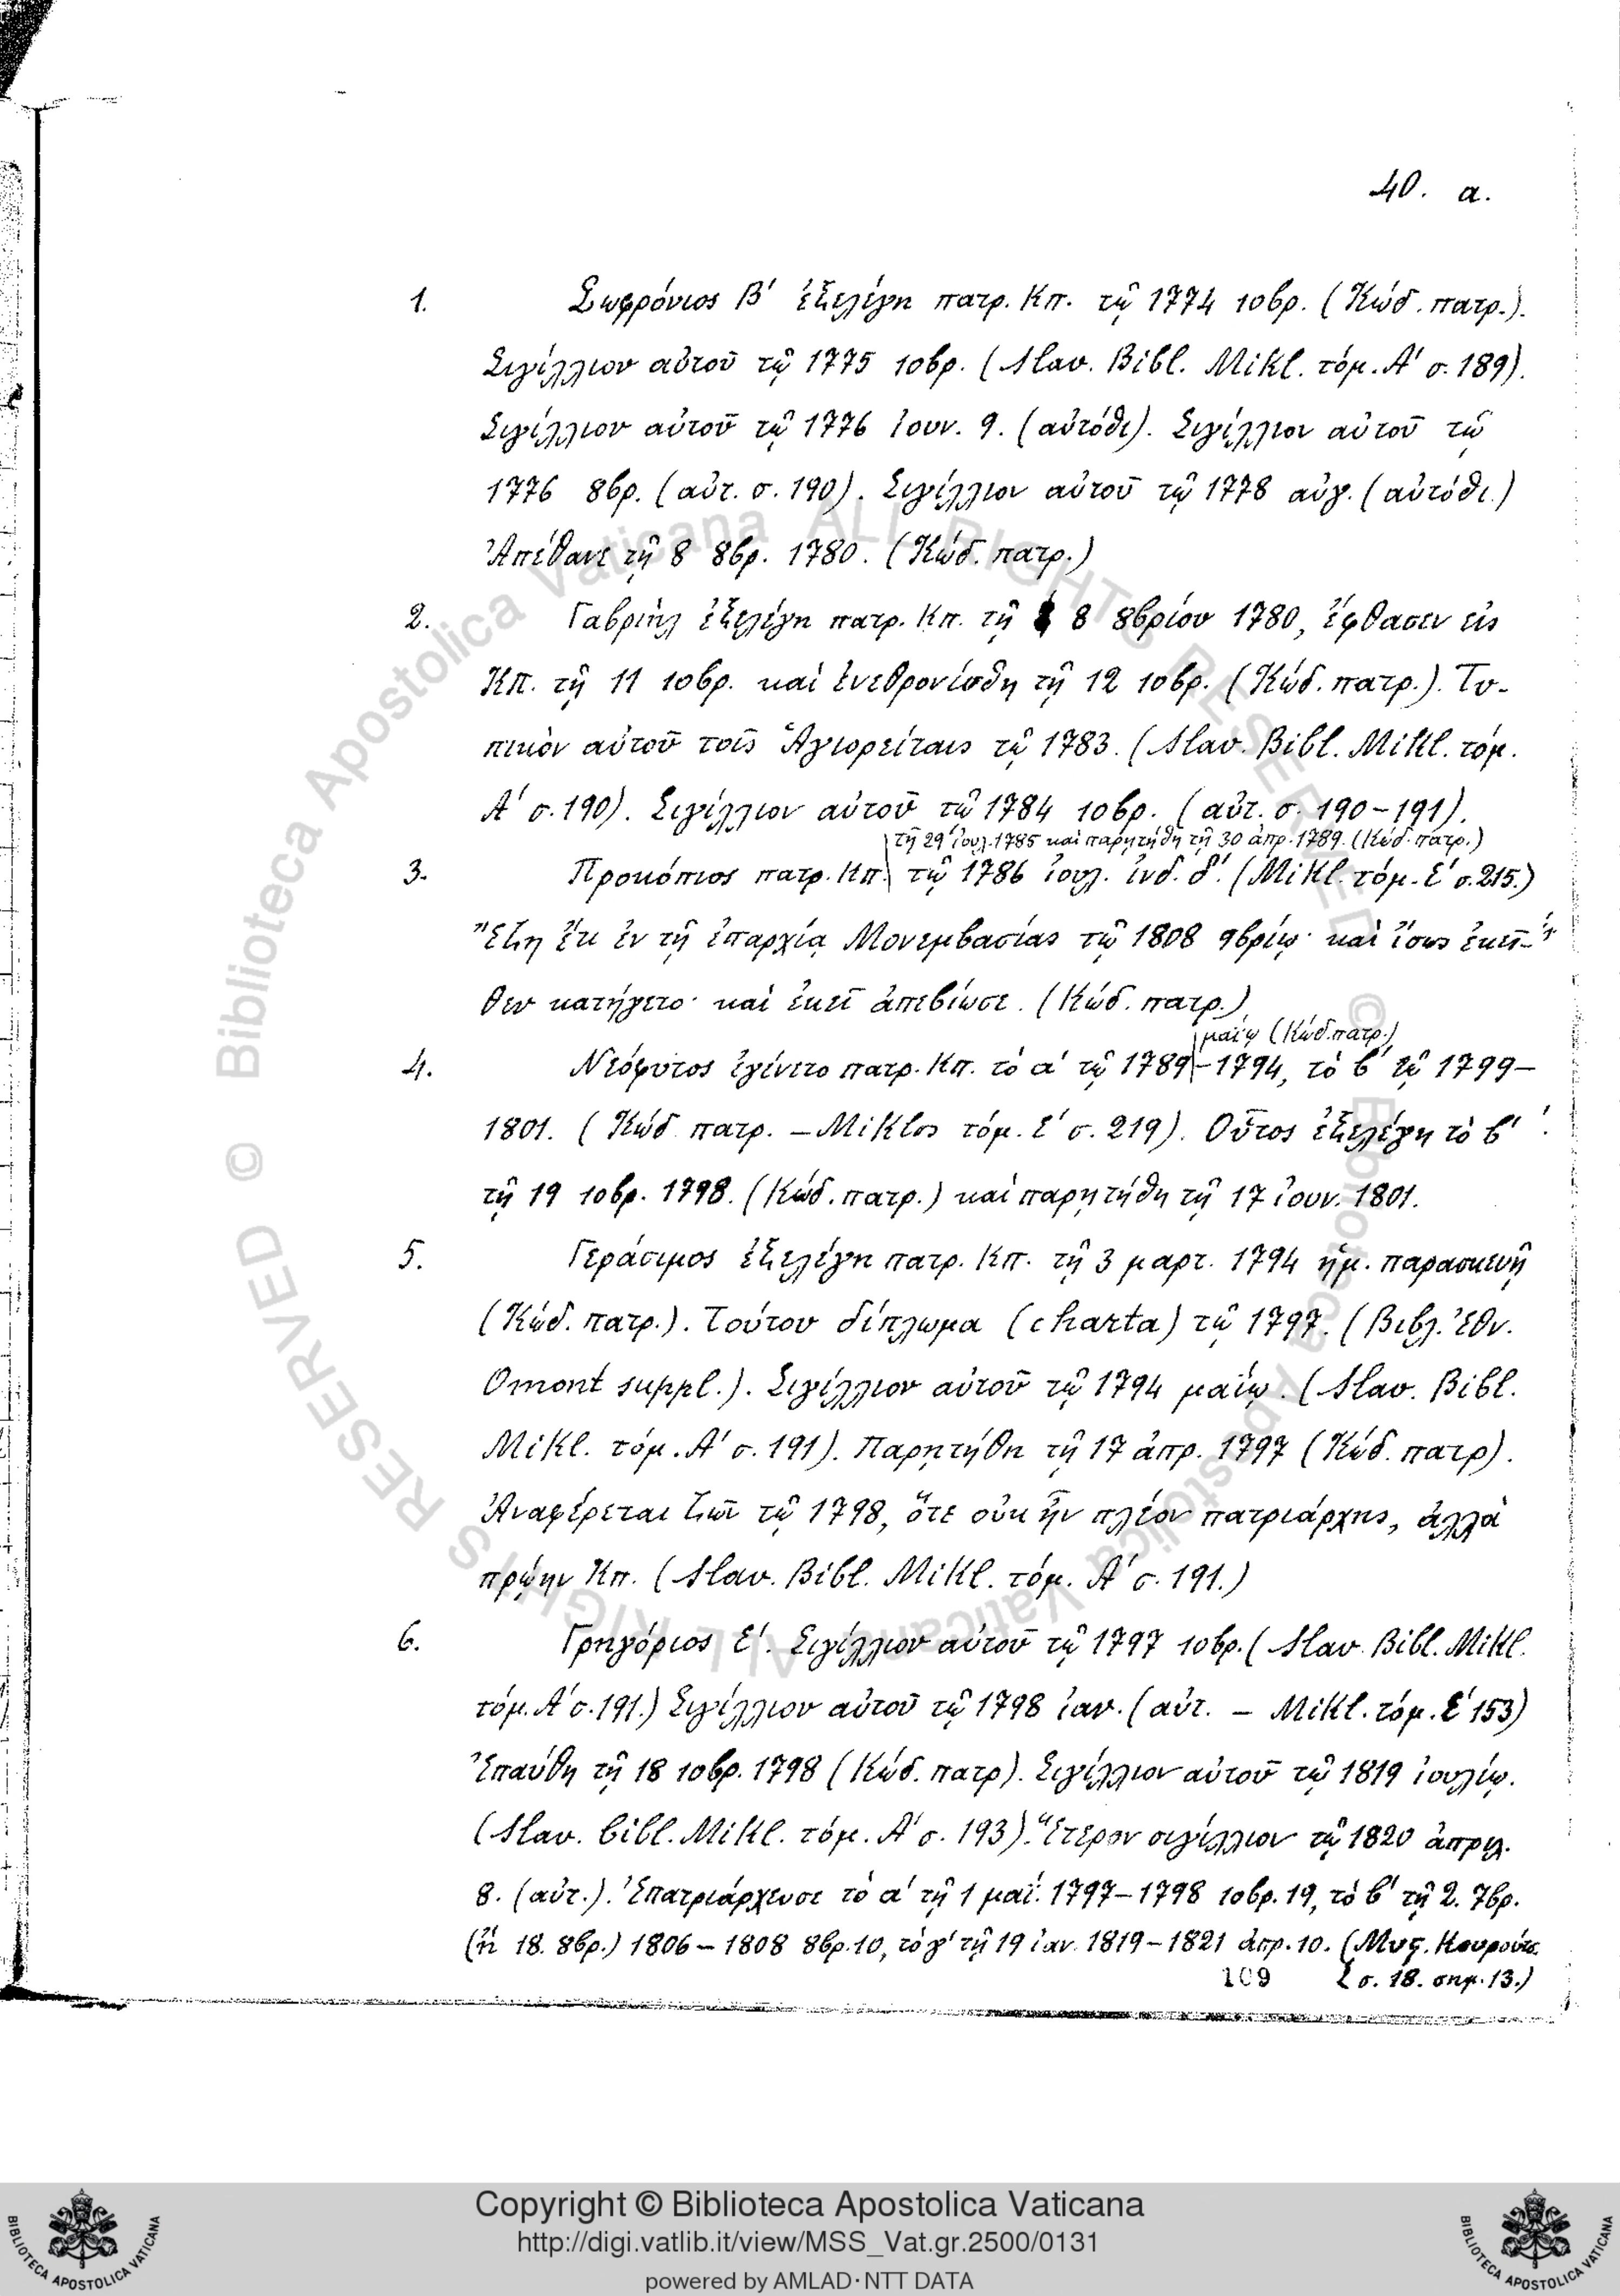 40. α.
1. Σωφρόνιος Β' ἐξελέγη πατρ. Κπ. τῷ 1774 10βρ. (Κώδ. πατρ.).
Σιγίλλιον αὐτοῦ τῷ 1775 10βρ. (Slav. Bibl. Mikl. τόμ. Α' σ. 189).
Σιγίλλιον αὐτοῦ τῷ 1776 Ἰουν. 9. (αὐτόθι). Σιγίλλιον αὐτοῦ τῷ
1776 8βρ. (αὐτ. σ. 190). Σιγίλλιον αὐτοῦ τῷ 1778 αὐγ. (αὐτόθι.)
Ἀπέθανε τῇ 8 8βρ. 1780. (Κώδ. πατρ.)
2. Γαβριὴλ ἐξελέγη πατρ. Κπ. τῇ 8 8βρίου 1780, ἔφθασεν εἰς
Κπ. τῇ 11 10βρ. καὶ ἐνεθρονίσθη τῇ 12 10βρ. (Κώδ. πατρ.). Τυ-
πικὸν αὐτοῦ τοῖς Ἁγιορείταις τῷ 1783. (Slav. Bibl. Mikl. τόμ.
Α' σ. 190). Σιγίλλιον αὐτοῦ τῷ 1784 10βρ. (αὐτ. σ. 190-191).
τῇ 29 ἰουλ. 1785 καὶ παρῃτήθη τῇ 30 ἀπρ. 1789. (Κώδ. πατρ.)
3. Προκόπιος πατρ. Κπ. τῷ 1786 ἰουλ. ἰνδ. δ'. (Mikl. τόμ. Ε' σ. 215.)
Ἔζη ἔτι ἐν τῇ ἐπαρχίᾳ Μονεμβασίας τῷ 1808 9βρίῳ· καὶ ἴσως ἐκεῖ-
θεν κατήγετο· καὶ ἐκεῖ ἀπεβίωσε. (Κώδ. πατρ.)
μαΐῳ (Κώδ. πατρ.)
4. Νεόφυτος ἐγένετο πατρ. Κπ. τὸ α' τῷ 1789-1794, τὸ β' τῷ 1799-
1801. (Κώδ. πατρ. - Miklos τόμ. Ε' σ. 219). Οὗτος ἐξελέγη τὸ β'
τῇ 19 10βρ. 1798. (Κώδ. πατρ.) καὶ παρῃτήθη τῇ 17 ἰουν. 1801.
5. Γεράσιμος ἐξελέγη πατρ. Κπ. τῇ 3 μαρτ. 1794 ἡμ. παρασκευῇ
(Κώδ. πατρ.). Τούτου δίπλωμα (charta) τῷ 1797. (Βιβλ. Ἐθν.
Omont suppl.). Σιγίλλιον αὐτοῦ τῷ 1794 μαΐῳ. (Slav. Bibl.
Mikl. τόμ. Α' σ. 191). Παρῃτήθη τῇ 17 ἀπρ. 1797 (Κώδ. πατρ).
Ἀναφέρεται ζῶν τῷ 1798, ὅτε οὐκ ἦν πλέον πατριάρχης, ἀλλὰ
πρῴην Κπ. (Slav. Bibl. Mikl. τόμ. Α' σ. 191.)
6. Γρηγόριος Ε'. Σιγίλλιον αὐτοῦ τῷ 1797 10βρ. (Slav. Bibl. Mikl.
τόμ. Α' σ. 191.) Σιγίλλιον αὐτοῦ τῷ 1798 ἰαν. (αὐτ. - Mikl. τόμ. Ε' 153)
Ἐπαύθη τῇ 18 10βρ. 1798 (Κώδ. πατρ). Σιγίλλιον αὐτοῦ τῷ 1819 ἰουλίῳ.
(Slav. bibl. Mikl. τόμ. Α' σ. 193). Ἕτερον σιγίλλιον τῷ 1820 ἀπριλ.
8. (αὐτ.). Ἐπατριάρχευσε τὸ α' τῇ 1 μαΐ. 1797-1798 10βρ. 19, τὸ β' τῇ 2. 7βρ.
(ἢ 18. 8βρ.) 1806-1808 8βρ. 10, τὸ γ' τῇ 19 ἰαν. 1819-1821 ἀπρ. 10. (
σ. 18. σημ. 13.)
109
© Biblioteca Apostolica Vaticana ALL RIGHTS RESERVED
Copyright © Biblioteca Apostolica Vaticana
http://digi.vatlib.it/view/MSS_Vat.gr.2500/0131
powered by AMLAD·NTT DATA
BIBLIOTECA APOSTOLICA VATICANA
BIBLIOTECA APOSTOLICA VATICANA